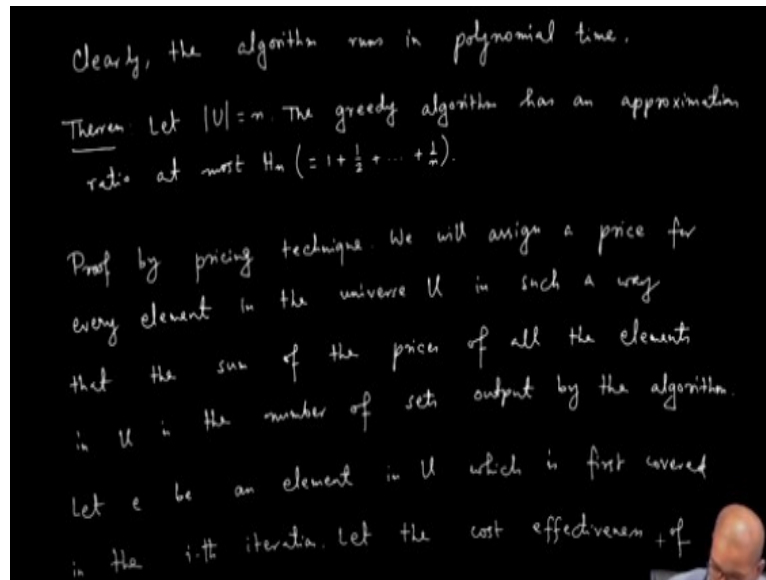 Clearly, the algorithm runs in polynomial time.
Theorem: Let |U| = n. The greedy algorithm has an approximation
ratio at most Hn (= 1 + 1/2 + ... + 1/n).
Proof by pricing technique. We will assign a price for
every element in the universe U in such a way
that the sum of the prices of all the elements
in U is the number of sets output by the algorithm.
Let e be an element in U which is first covered
in the i-th iteration. Let the cost effectiveness of